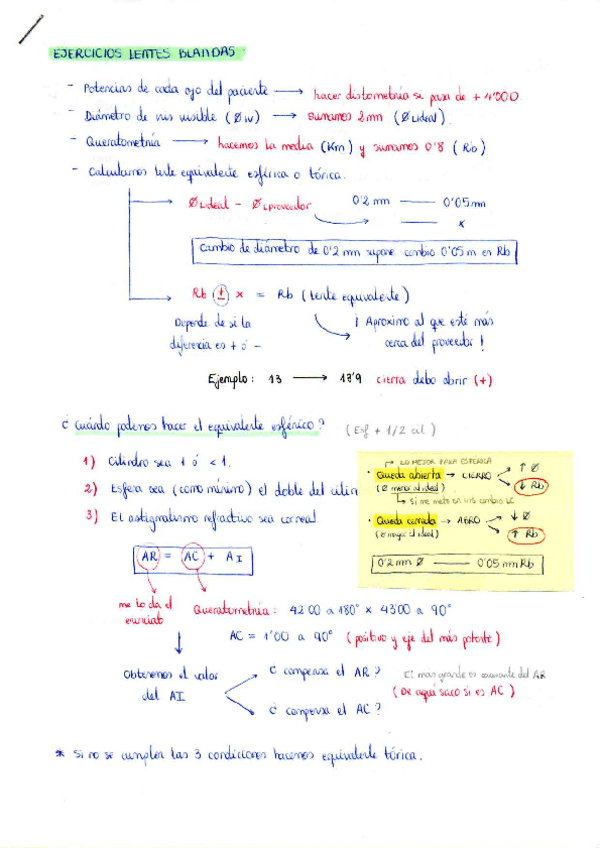 EJERCICIOS LENTES BLANDAS
- Potencias de cada ojo del paciente → hacer distometría si pasa de + 4'00
- Diámetro de iris visible (Ø iv) → sumamos 2 mn (Ø Lideal)
- Queratometría → hacemos la media (Km) y sumamos 0'8 (Rb)
- Calculamos lente equivalente esférica o tórica.
→ Ø Lideal - Ø Lproveedor 0'2 mm — 0'05 mm
— x
Cambio de diámetro de 0'2 mm supone cambio 0'05 m en Rb
→ Rb ± x = Rb (lente equivalente)
Depende de si la
diferencia es + ó -
¡ Aproximo al que esté más
cerca del proveedor !
Ejemplo: 13 → 13'9 cierra debo abrir (+)
¿ Cuándo podemos hacer el equivalente esférico? (Esf + 1/2 cil)
1) Cilindro sea 1 ó < 1.
2) Esfera sea (como mínimo) el doble del cilin
3) El astigmatismo refractivo sea corneal
LO MEJOR PARA ESFÉRICA
· Queda abierta → CIERRO → ↑ Ø
(Ø menor al ideal) ↓ Rb
Si me meto en VIS cambio LC
· Queda cerrada → ABRO → ↓ Ø
(Ø mayor al ideal) ↑ Rb
0'2 mm Ø — 0'05 mm Rb
AR = AC + AI
me lo da el
enunciado
Queratometría: 42'00 a 180° x 43'00 a 90°
AC = 1'00 a 90° (positivo y eje del más potente)
Obtenemos el valor
del AI
¿ compensa el AR ?
¿ compensa el AC ?
El mas grande es causante del AR
(De aquí saco si es AC)
* Si no se cumplen las 3 condiciones hacemos equivalente tórica.